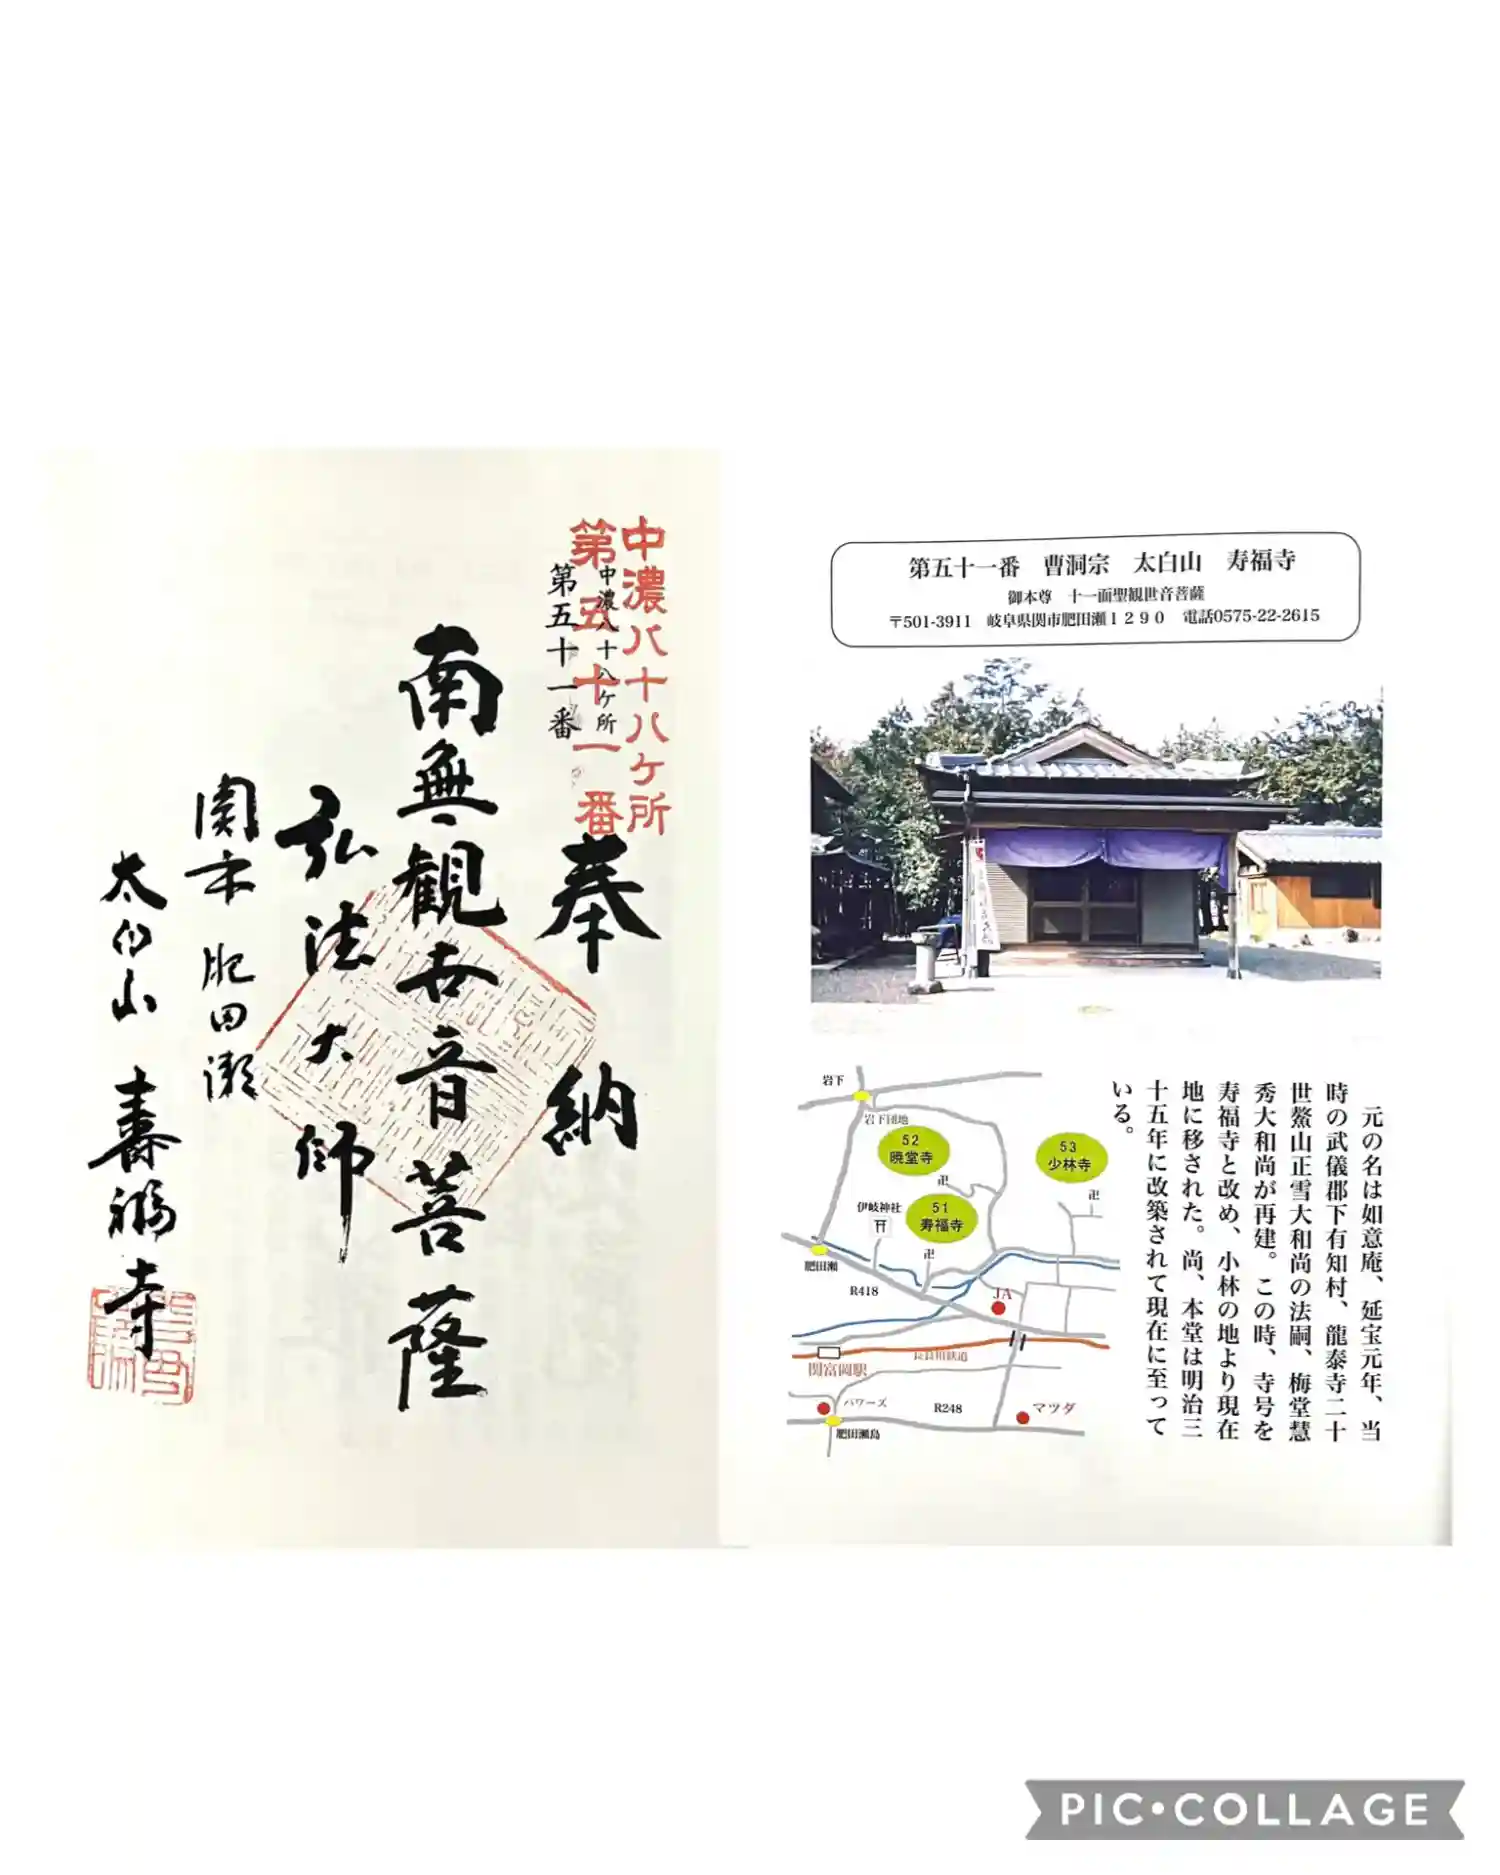 中濃八十八ケ所
第五十一番
中濃八十八ケ所
第五十一番
奉納
南無観世音菩薩
弘法大師
関市肥田瀬
太白山 壽福寺
第五十一番 曹洞宗 太白山 寿福寺
御本尊 十一面聖観世音菩薩
〒501-3911 岐阜県関市肥田瀬1290 電話0575-22-2615
元の名は如意庵、延宝元年、当
時の武儀郡下有知村、龍泰寺二十
世鰲山正雪大和尚の法嗣、梅堂慧
秀大和尚が再建。この時、寺号を
寿福寺と改め、小林の地より現在
地に移された。尚、本堂は明治三
十五年に改築されて現在に至って
いる。
岩下
岩下団地
52
暁堂寺
53
少林寺
卍
卍
伊岐神社
51
寿福寺
卍
肥田瀬
R418
JA
長良川鉄道
関富岡駅
パワーズ
R248
マツダ
肥田瀬島
PIC•COLLAGE